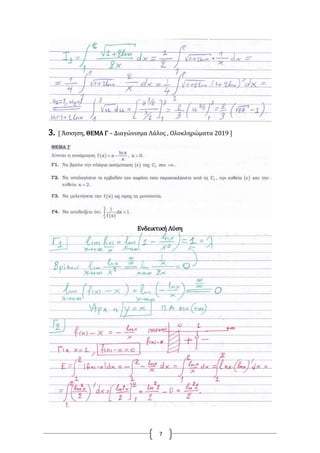 I₃ = ∫₁ᵉ √(1+2lnx) / 2x dx = 1/2 ∫₁ᵉ √(1+2lnx) · 1/x dx =
= 1/4 ∫₁ᵉ √(1+2lnx) · 2/x dx = 1/4 ∫₁ᵉ √(1+2lnx) (1+2lnx)' dx =
3. [ Άσκηση, ΘΕΜΑ Γ – Διαγώνισμα Λάλος , Ολοκληρώματα 2019 ]
ΘΕΜΑ Γ
Δίνεται η συνάρτηση f(x) = x − lnx/x , x > 0.
Γ1. Να βρείτε την πλάγια ασύμπτωτη (ε) της C_f στο +∞.
Γ2. Να υπολογίσετε το εμβαδόν του χωρίου που περικλείεται από τη C_f , την ευθεία (ε) και την
ευθεία x = 2.
Γ3. Να μελετήσετε την f(x) ως προς τη μονοτονία.
Γ4. Να αποδείξετε ότι: ∫ 1/f(x) dx < 1.
Ενδεικτική Λύση
Γ1 lim f(x)/x = lim (1 − lnx/x²) = 1 = λ
Βρίσκω lim lnx/x² = lim 1/x / 2x = 0
lim (f(x) − x) = lim (− lnx/x) = 0
Άρα η y = x Π.Α στο (+∞)
Γ2
f(x) − x = − lnx/x
Για x ≥ 1 , f(x) − x ≤ 0
E = ∫₁² |f(x)−x| dx = − ∫₁² − lnx/x dx = ∫₁² lnx/x dx = ∫₁² lnx (lnx)' dx =
= ∫₁² (ln²x/2)' dx = [ln²x/2]₁² = ln²2/2 − 0 = ln²2/2 .
7